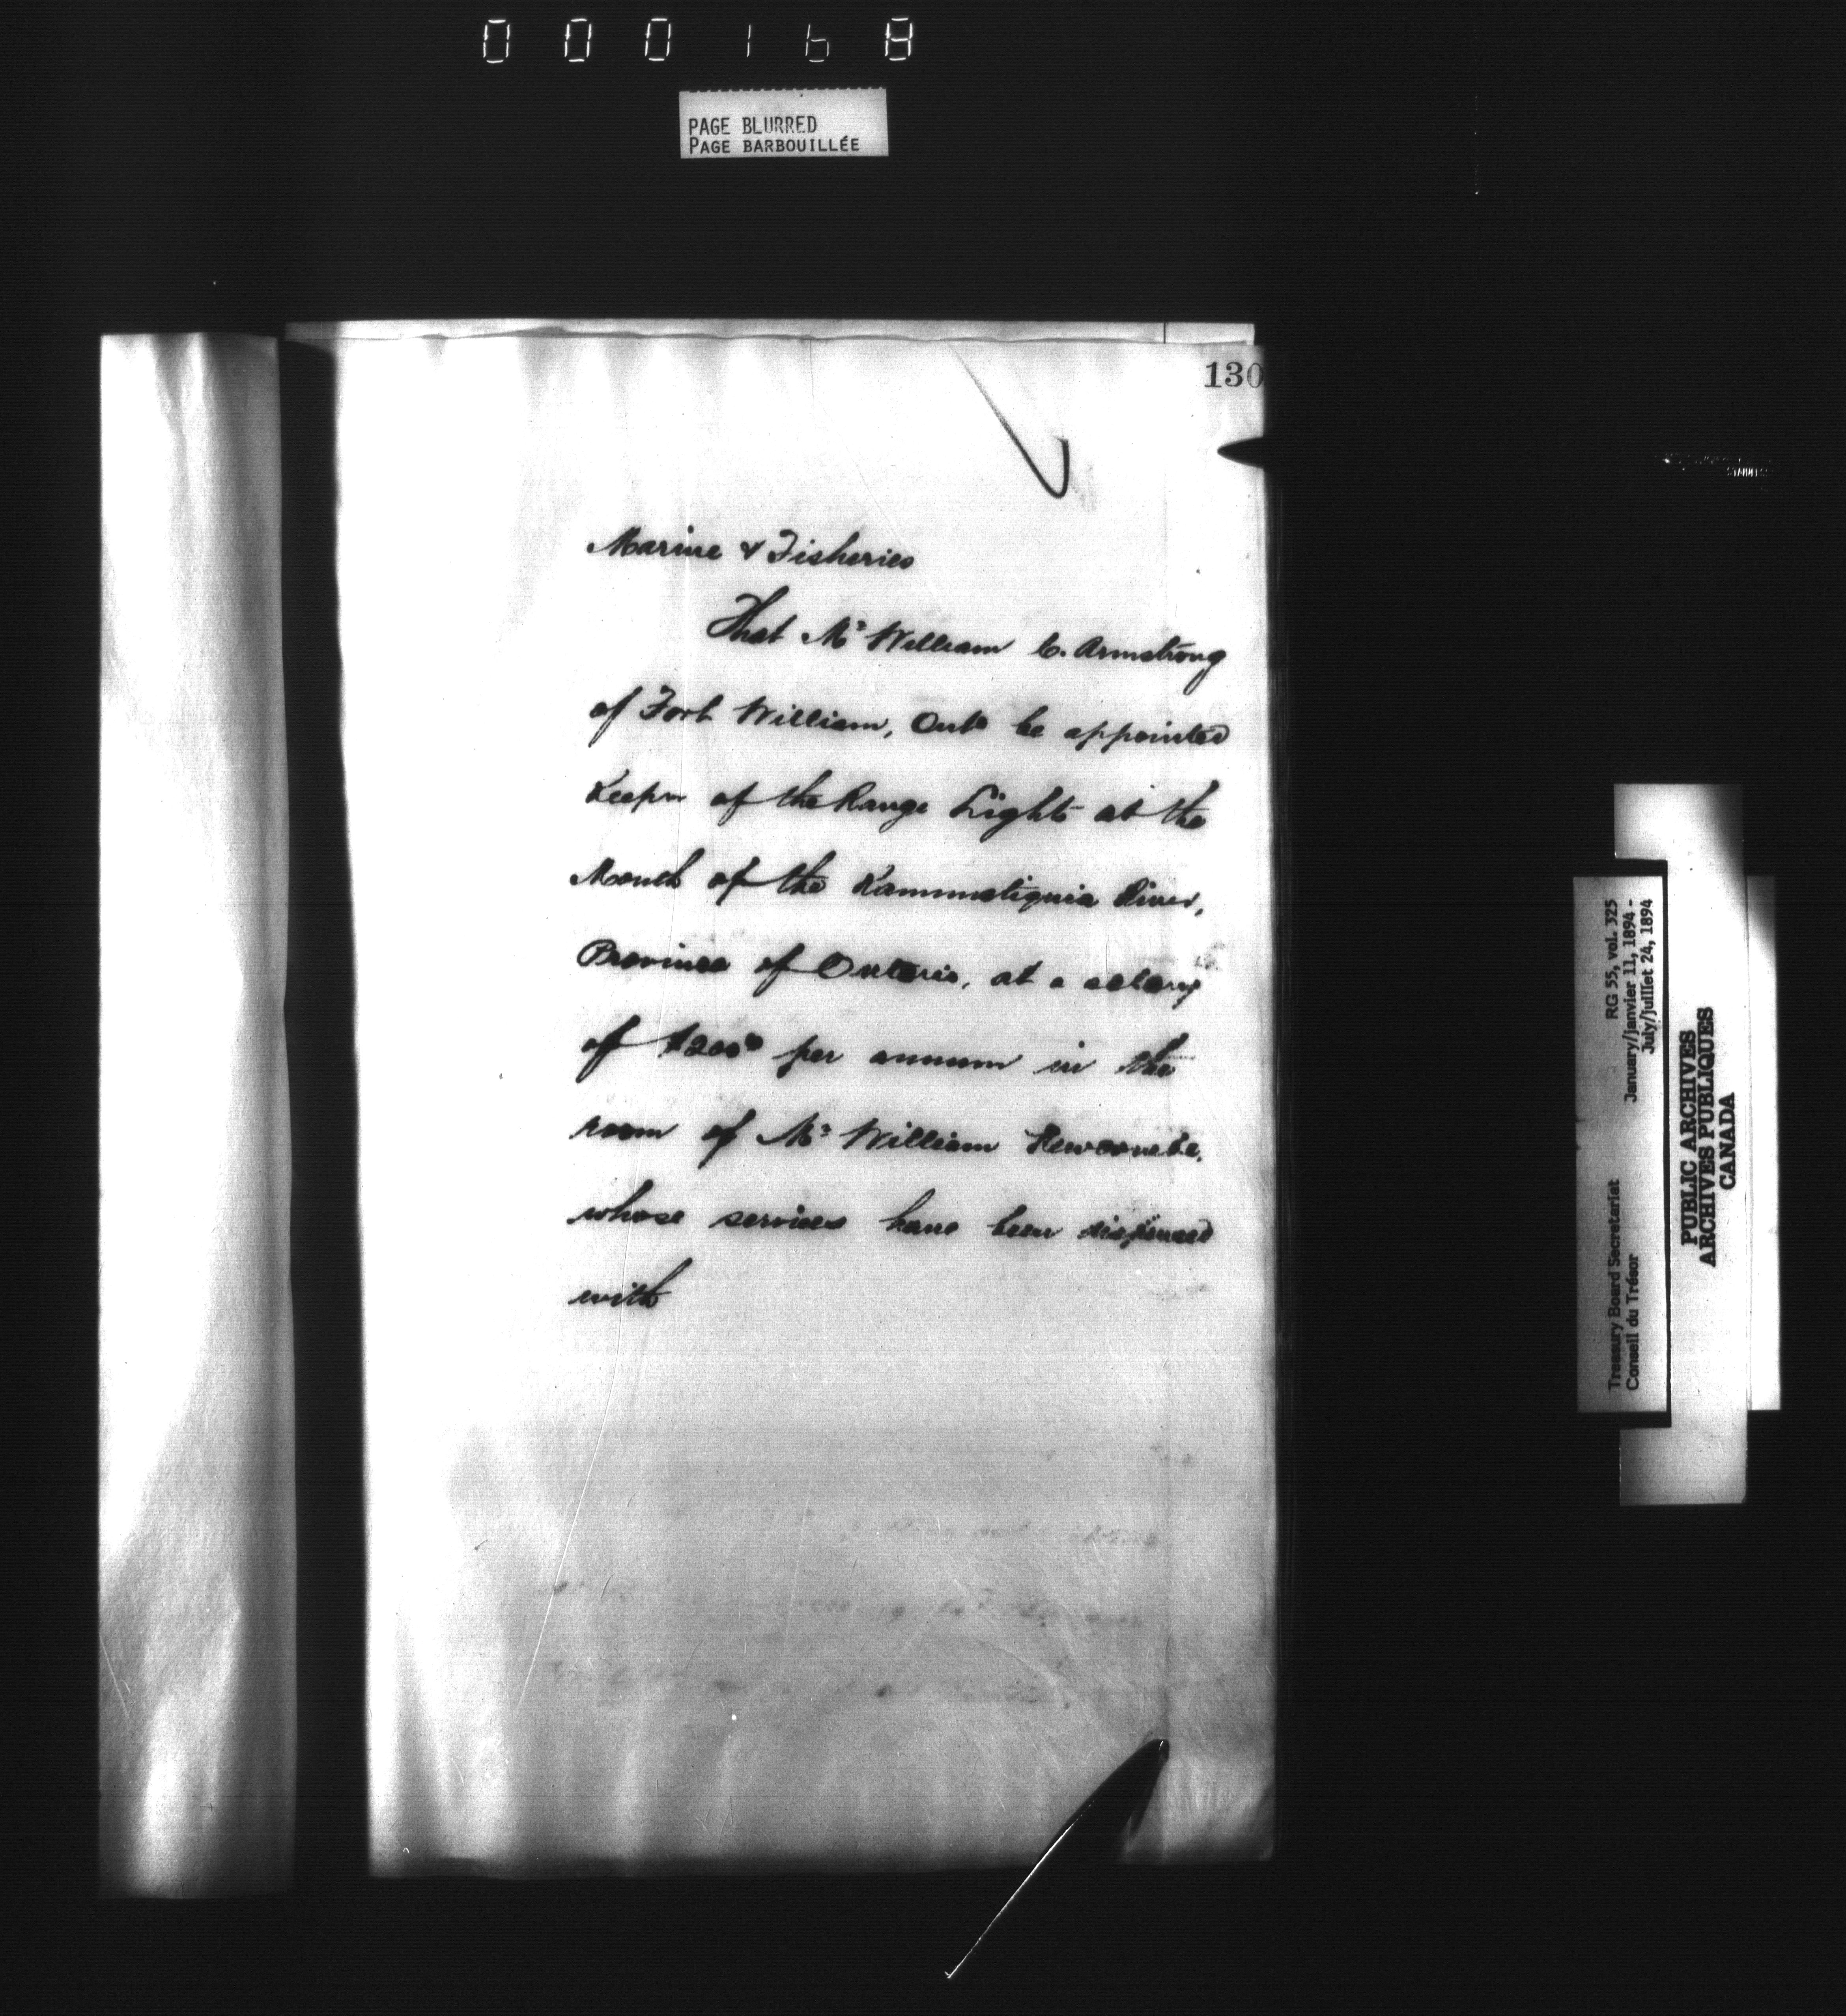 000168
PAGE BLURRED
PAGE BARBOUILLÉE
130
Marine & Fisheries
That Mr William C. Armstrong
of Fort William, Ont be appointed
Keeper of the Range Lights at the
Mouth of the Kammistiquia River,
Province of Ontario, at a salary
of $200 per annum in the
room of Mr William Newcombe,
whose services have been dispensed
with
Treasury Board Secretariat RG 55, vol. 325
Conseil du Trésor January/janvier 11, 1894 -
July/juillet 24, 1894
PUBLIC ARCHIVES
ARCHIVES PUBLIQUES
CANADA